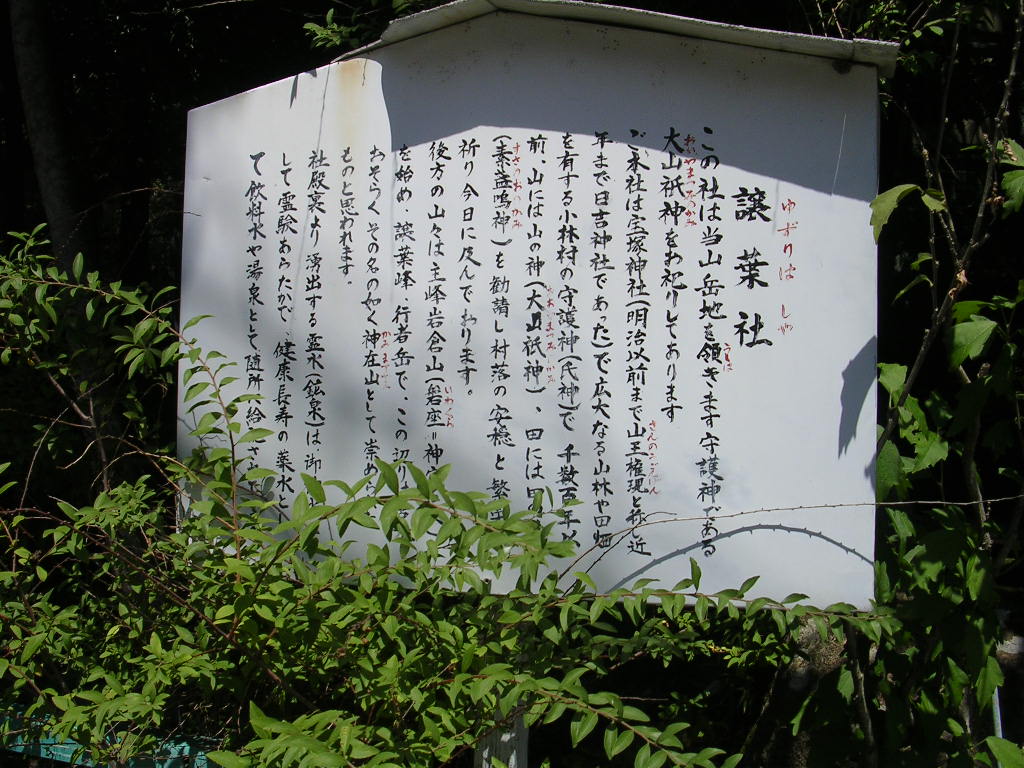 ゆずりは しゃ
譲葉社
この社は当山岳地を領きます守護神である
大山祇神をお祀りしてあります
ご本社は宝塚神社(明治以前まで山王権現と称し近
年まで日吉神社であった)で広大なる山林や田畑
を有する小林村の守護神(氏神)で 千数百年以
前、山には山の神(大山祇神)、田には田
(素盞鳴神)を勧請し村落の安穏と繁
祈り今日に及んでおります。
後方の山々は主峰岩倉山(磐座=神
を始め、譲葉峰、行者岳で、この辺
おそらくその名の如く神在山として崇め
ものと思われます。
社殿裏より湧出する霊水(鉱泉)は、御
して霊験あらたかで、健康長寿の薬水と
て飲料水や湯泉として随所に給さ